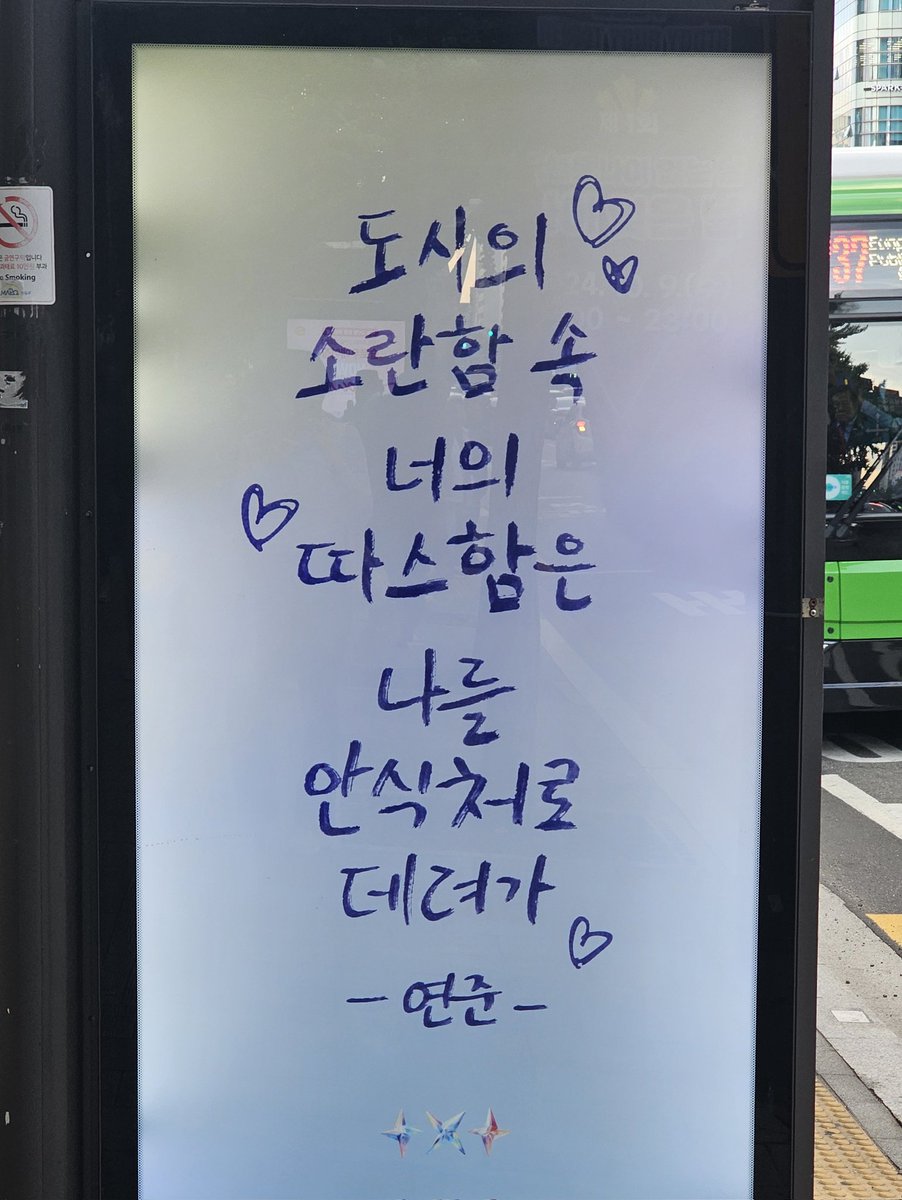 도시의
소란함 속
너의
따스함은
나를
안식처로
데려가
-연준-
Smoking
SPARK
37